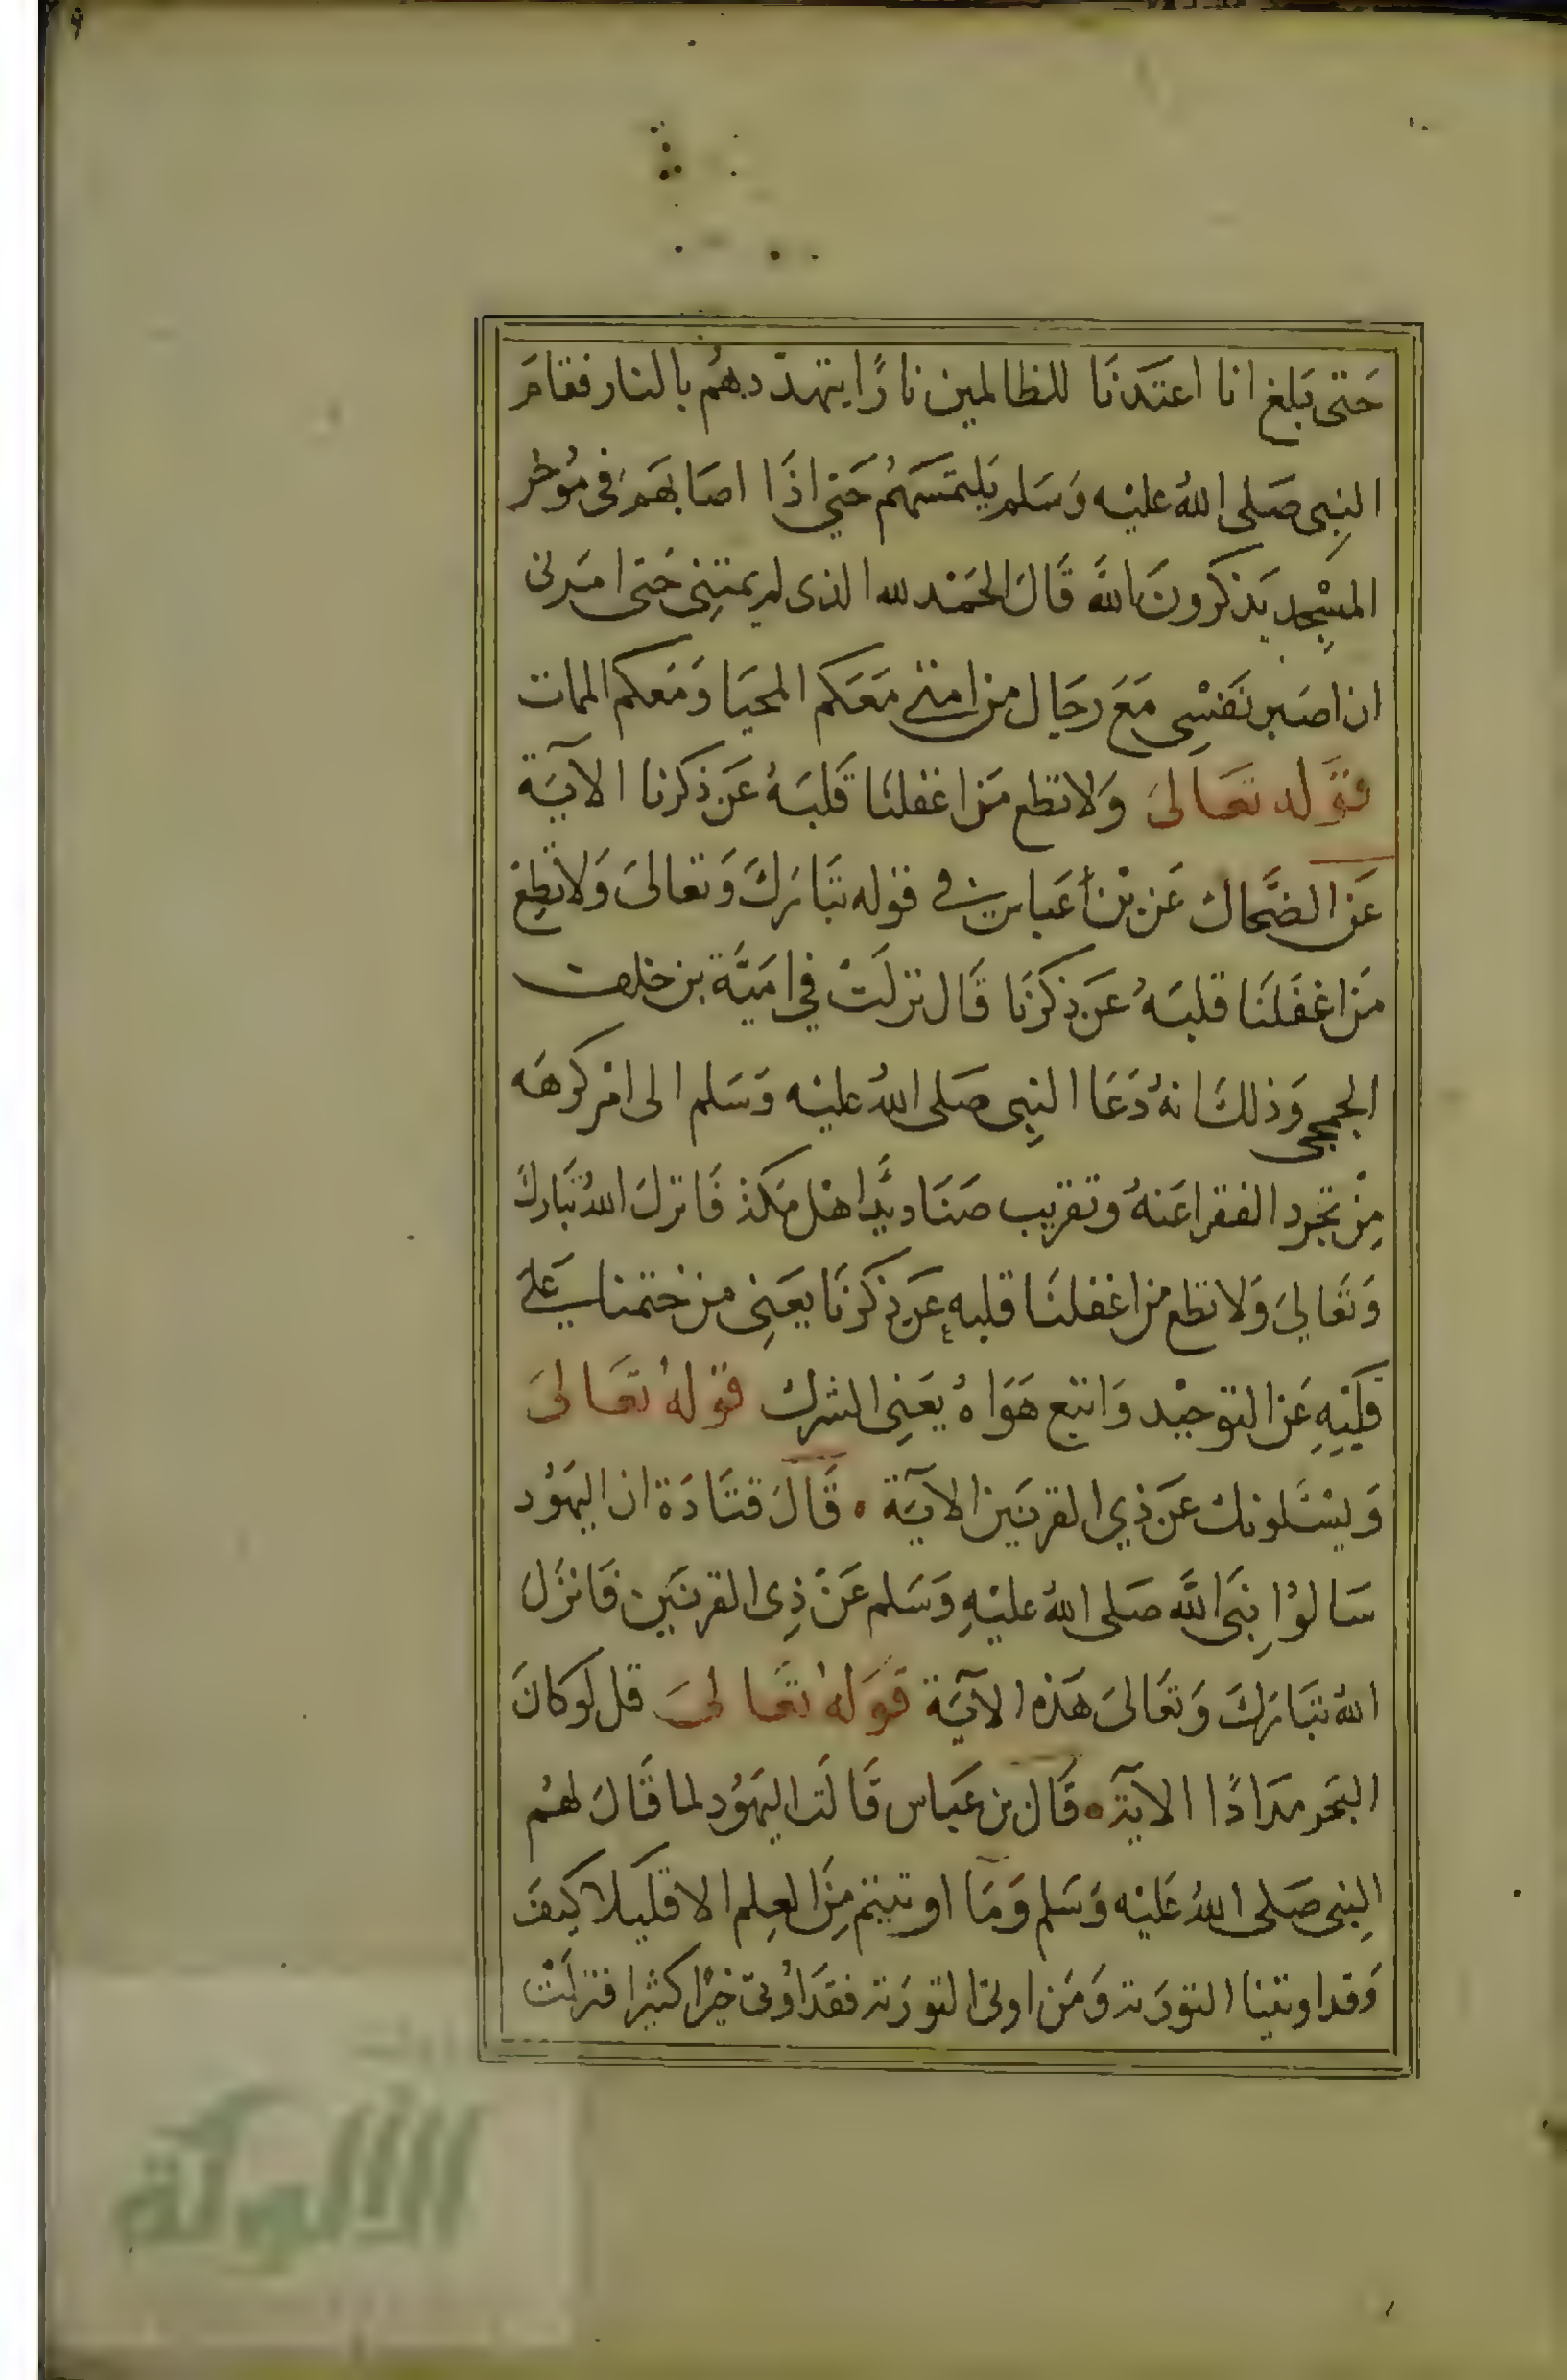 حَتى بَلغ انا اعتَدنَا للظالمين نارًا يتهدّدهُم بالنار فقامَ
النبِى صَلى اللهُ عليْه وَسَلم يَلتمسَهُم حَتي اذَا اصَابهَم فى مُوخر
المسْجِد يَذكرونَ اللهَ قَالَ الحَمْد لله الذى لم يمتنِى حَتى امَرنى
ان اصَبر نَفسْىِ مَعَ رجَال من امتى مَعَكم المحيَا وَمَعكم الممات
قوَله تعَالىَ وَلا تطع مَن اغفلنَا قَلبَهُ عَن ذكرنا الآيَة
عَن الضَّحاك عَن بْن عَباسٍ في قوله تبَارَكَ وَتعَالىَ وَلا تُطِع
مَن اغفَلنَا قلبَهُ عَن ذِكرنَا قَال نزلَتْ في اميَّة بن خلف
الجمحِى وَذلكَ انهُ دَعَا النبِى صَلى اللهُ عليْه وَسَلم الى امْر كرهَه
مِنْ تجرد الفقرا عَنهُ وتقريب صَنَاديَّد اهْل مَكة فَانزلَ اللهُ تَبَاركَ
وَتَعَالىَ وَلا تطع من اغفلنَا قلبهِ عَن ذِكرنَا يعَنِى من ختمنا عَلى
قلبِهِ عَن التوحيْد وَاتبع هَوَاهُ يعَنِى الشرك قوْلهُ تعَالىَ
وَيسْئَلونك عَن ذِي القرنَين الآيَة . قَالَ قتَادَة ان اليَهوُد
سَالوُا نبِىَ اللهَ صَلى اللهُ عليْهِ وَسَلم عَنْ ذِى القرنَين فَانزَلَ
اللهُ تبَارَكَ وَتعَالىَ هَذه الآيَة قوَلهُ تعَالىَ قل لو كانَ
البَحر مدَادًا الآية . قَال بن عَبَاس قَالَت اليَهوُد لما قَالَ لهُم
النِبى صَلى اللهُ عَليْه وَسَلم وَمَا اوتيتم مِنَ العِلم الا قليَلا كيفَ
وَقد اوتينا التورَىة وَمَن اوتى التورَىة فقدَ اوُتى خيْرًا كثيرا فنزلَتْ
الألوكة